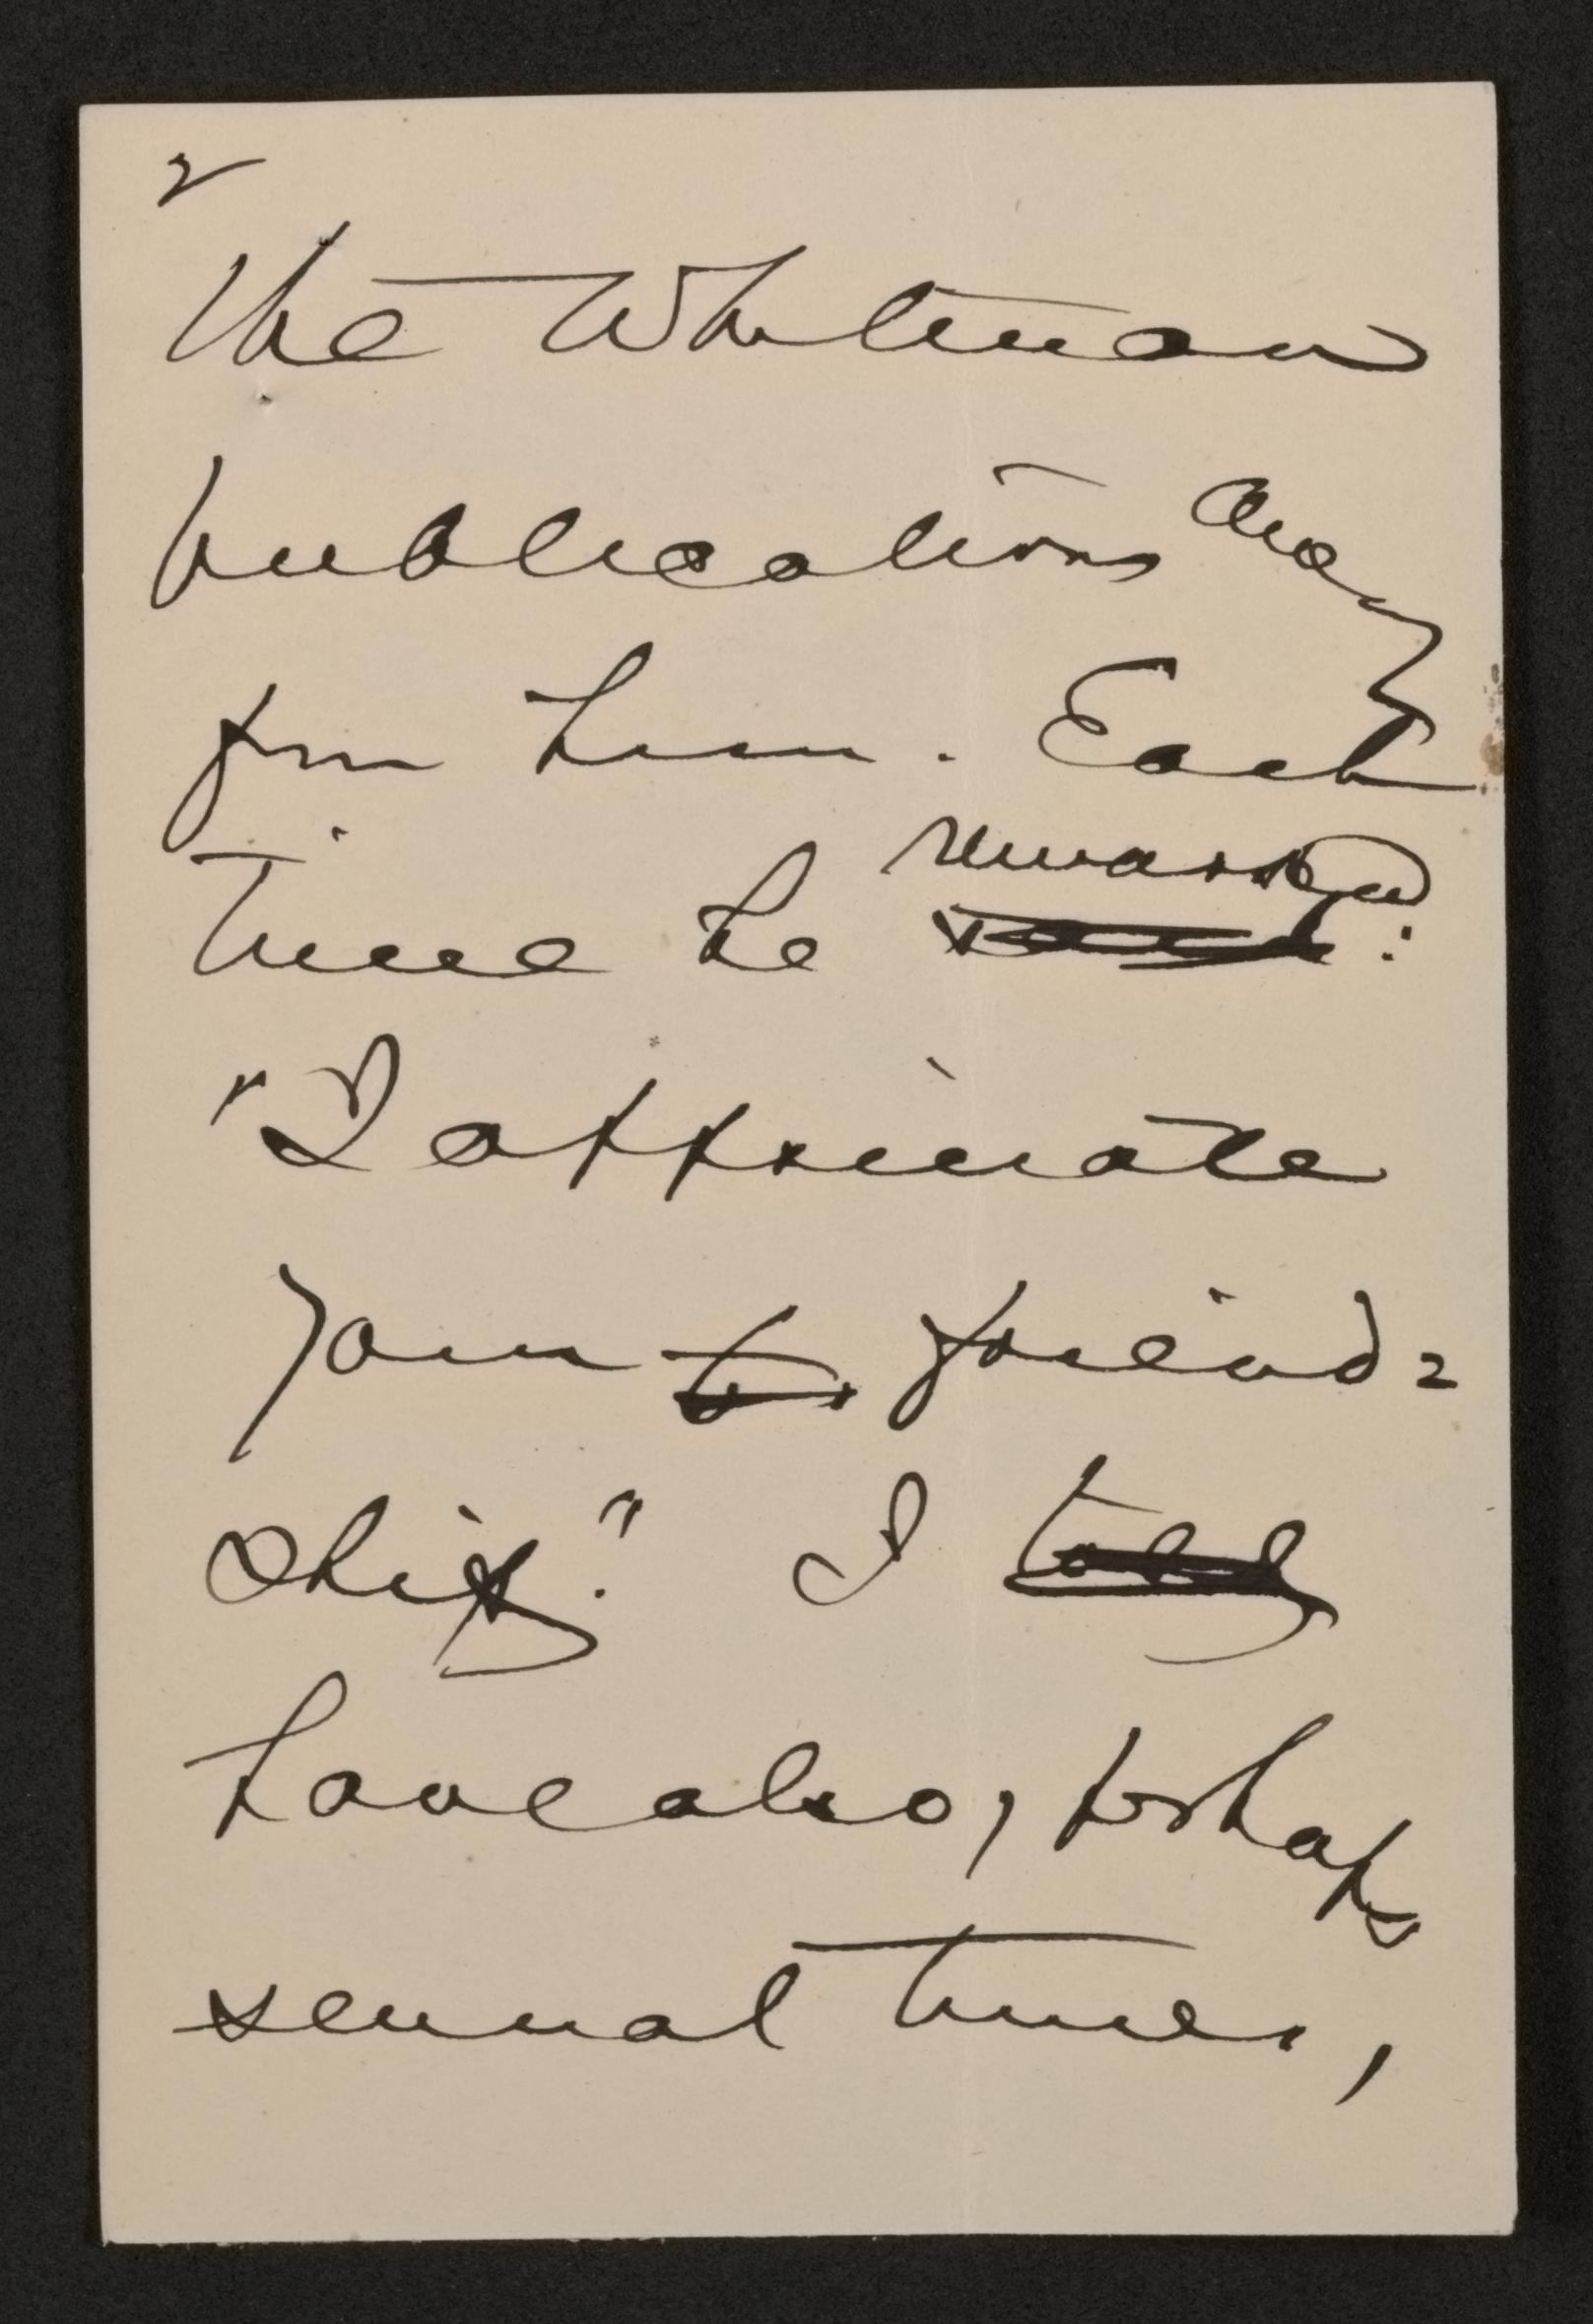 2
the Whitman
publications away
from him. Each
remarked
time he :
"I appreciate
your friend=
ship." I
have also, perhaps
several times,